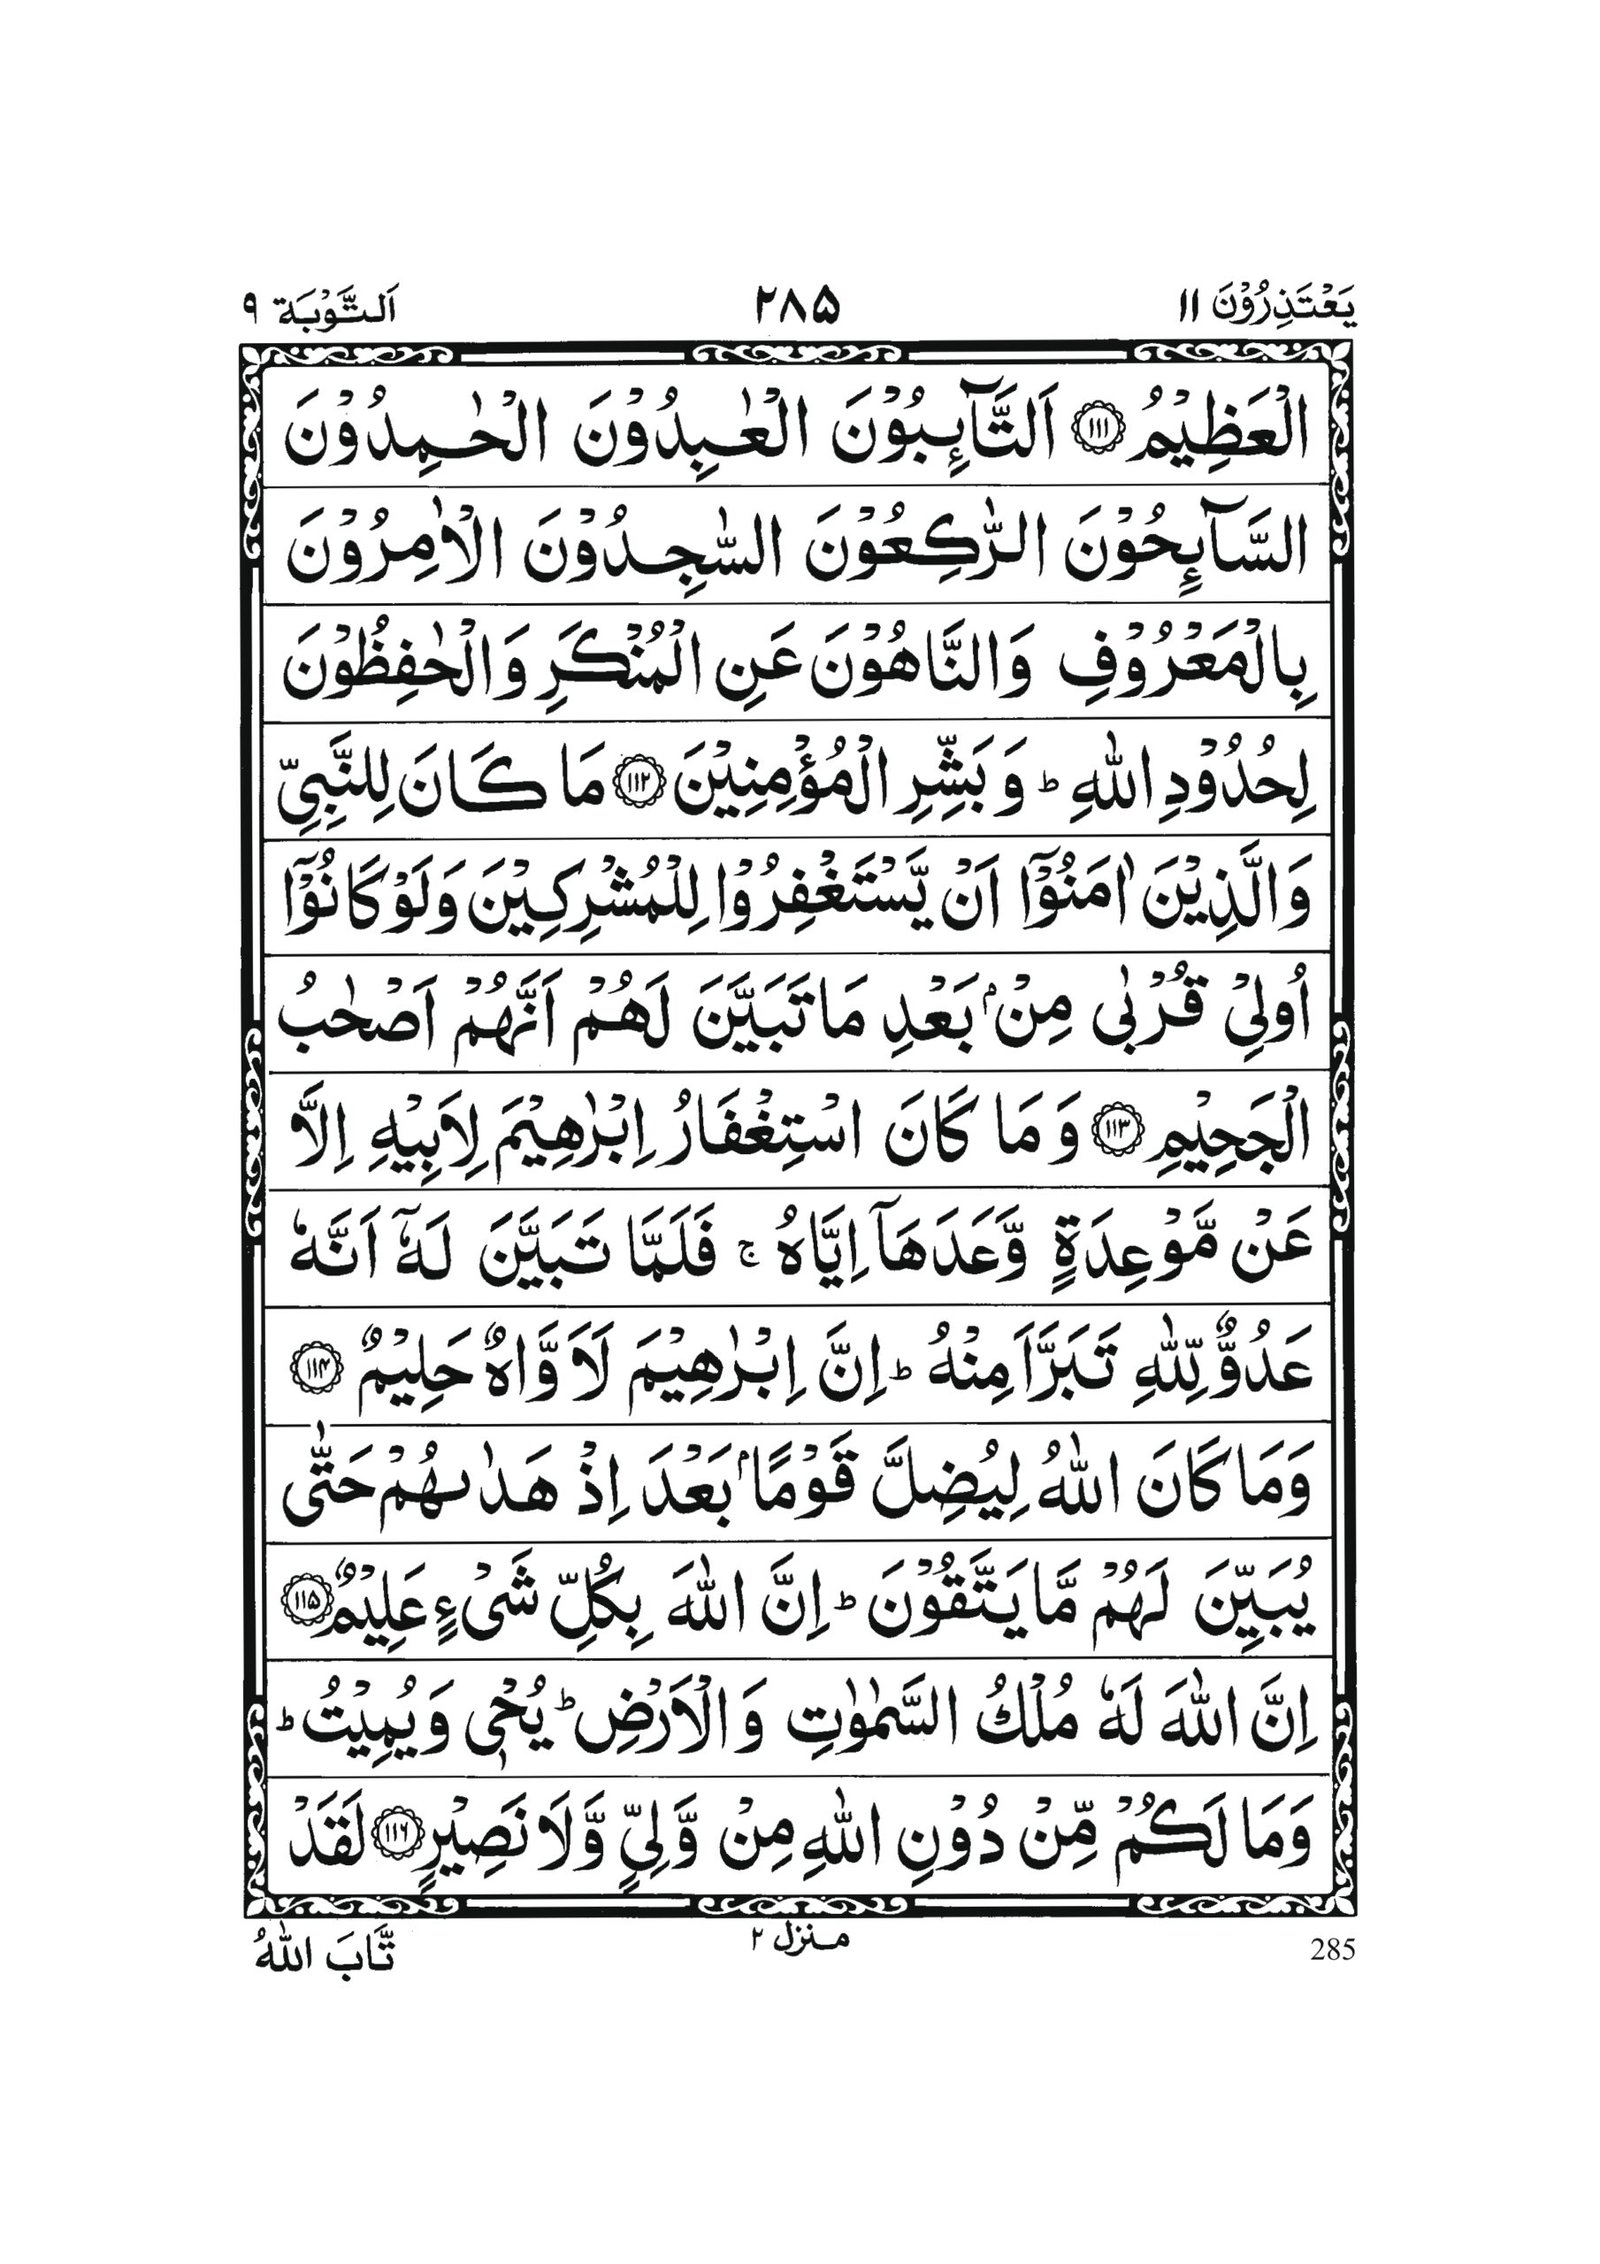 يَعْتَذِرُوْنَ ۱۱ ۲۸۵ اَلتَّوْبَة ۹
الْعَظِيْمُ ۝۱۱۱ اَلتَّآىِٕبُوْنَ الْعٰبِدُوْنَ الْحٰمِدُوْنَ
السَّآىِٕحُوْنَ الرّٰكِعُوْنَ السّٰجِدُوْنَ الْاٰمِرُوْنَ
بِالْمَعْرُوْفِ وَالنَّاهُوْنَ عَنِ الْمُنْكَرِ وَالْحٰفِظُوْنَ
لِحُدُوْدِ اللّٰهِ ؕ وَبَشِّرِ الْمُؤْمِنِيْنَ ۝۱۱۲ مَا كَانَ لِلنَّبِيِّ
وَالَّذِيْنَ اٰمَنُوْۤا اَنْ يَّسْتَغْفِرُوْا لِلْمُشْرِكِيْنَ وَلَوْ كَانُوْۤا
اُولِيْ قُرْبٰى مِنْۢ بَعْدِ مَا تَبَيَّنَ لَهُمْ اَنَّهُمْ اَصْحٰبُ
الْجَحِيْمِ ۝۱۱۳ وَمَا كَانَ اسْتِغْفَارُ اِبْرٰهِيْمَ لِاَبِيْهِ اِلَّا
عَنْ مَّوْعِدَةٍ وَّعَدَهَاۤ اِيَّاهُ ۚ فَلَمَّا تَبَيَّنَ لَهٗۤ اَنَّهٗ
عَدُوٌّ لِّلّٰهِ تَبَرَّاَ مِنْهُ ؕ اِنَّ اِبْرٰهِيْمَ لَاَوَّاهٌ حَلِيْمٌ ۝۱۱۴
وَمَا كَانَ اللّٰهُ لِيُضِلَّ قَوْمًۢا بَعْدَ اِذْ هَدٰىهُمْ حَتّٰى
يُبَيِّنَ لَهُمْ مَّا يَتَّقُوْنَ ؕ اِنَّ اللّٰهَ بِكُلِّ شَيْءٍ عَلِيْمٌ ۝۱۱۵
اِنَّ اللّٰهَ لَهٗ مُلْكُ السَّمٰوٰتِ وَالْاَرْضِ ؕ يُحْيٖ وَيُمِيْتُ ؕ
وَمَا لَكُمْ مِّنْ دُوْنِ اللّٰهِ مِنْ وَّلِيٍّ وَّلَا نَصِيْرٍ ۝۱۱۶ لَقَدْ
285 منزل ۲ تَّابَ اللّٰهُ